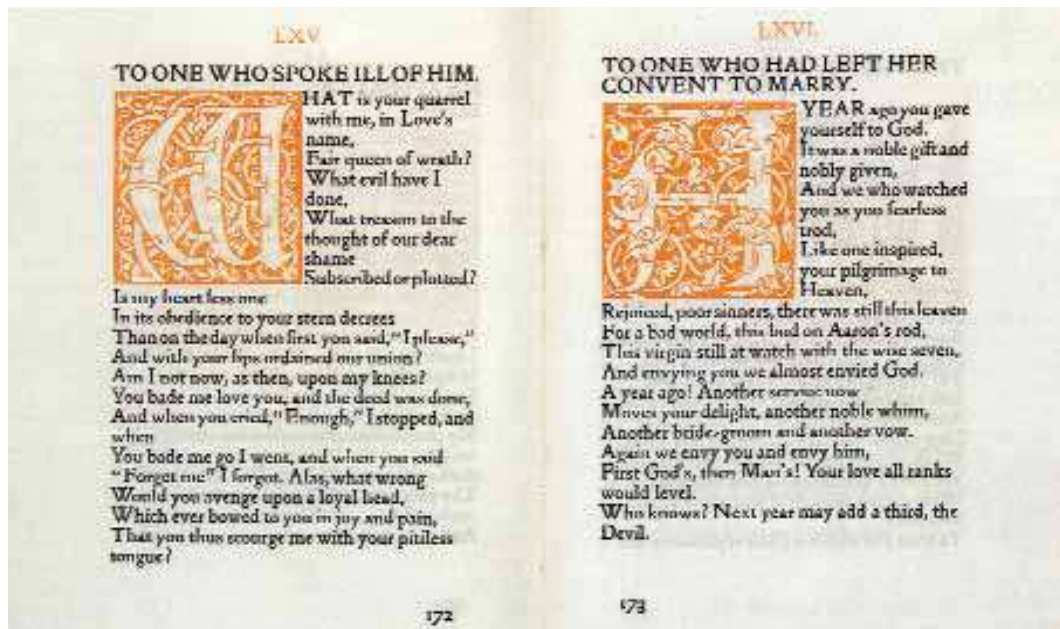 LXV
TO ONE WHO SPOKE ILL OF HIM.
WHAT is your quarrel
with me, in Love's
name,
Fair queen of wrath?
What evil have I
done,
What treason to the
thought of our dear
shame
Subscribed or plotted?
Is my heart less one
In its obedience to your stern decrees
Than on the day when first you said, "I please,"
And with your lips ordained our union?
Am I not now, as then, upon my knees?
You bade me love you, and the deed was done,
And when you cried, "Enough," I stopped, and
when
You bade me go I went, and when you said
"Forget me" I forgot. Alas, what wrong
Would you avenge upon a loyal head,
Which ever bowed to you in joy and pain,
That you thus scourge me with your pitiless
tongue?
172
LXVI.
TO ONE WHO HAD LEFT HER
CONVENT TO MARRY.
A YEAR ago you gave
yourself to God.
It was a noble gift and
nobly given,
And we who watched
you as you fearless
trod,
Like one inspired,
your pilgrimage to
Heaven,
Rejoiced, poor sinners, there was still this leaven
For a bad world, this bud on Aaron's rod,
This virgin still at watch with the wise seven,
And envying you we almost envied God.
A year ago! Another service now
Moves your delight, another noble whim,
Another bride-groom and another vow.
Again we envy you and envy him,
First God's, then Man's! Your love all ranks
would level.
Who knows? Next year may add a third, the
Devil.
173